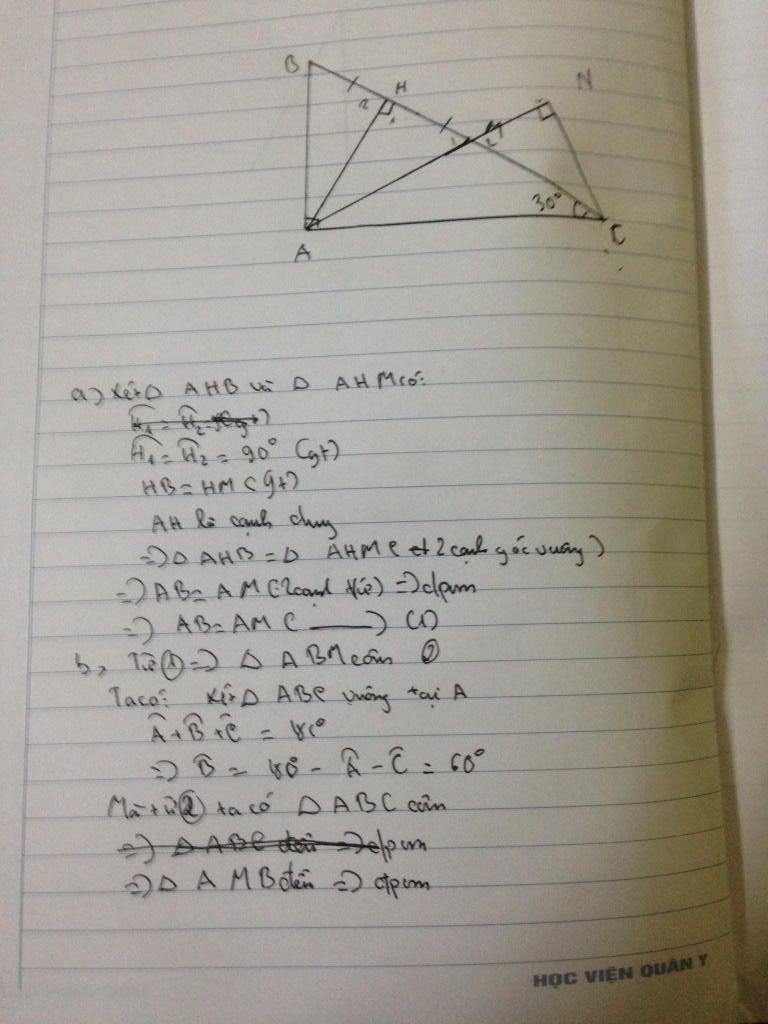 B
H
N
2
1
M
1
2
30°
A
C
a) Xét Δ AHB và Δ AHM có:
Ĥ1 = Ĥ2 = 90° (gt)
HB = HM (gt)
AH là cạnh chung
=> Δ AHB = Δ AHM ( 2 cạnh góc vuông )
=> AB = AM (2 cạnh ) => đpcm
=> AB = AM ( —— ) (1)
b, Từ (1) => Δ ABM cân (2)
Ta có: Xét Δ ABC vuông tại A
Â + B̂ + Ĉ = 180°
=> B̂ = 180 - Â - Ĉ = 60°
Mà từ (2) ta có Δ ABC cân
=> Δ ABC đều => đpcm
=> Δ AMB đều => đpcm
HỌC VIỆN QUÂN Y